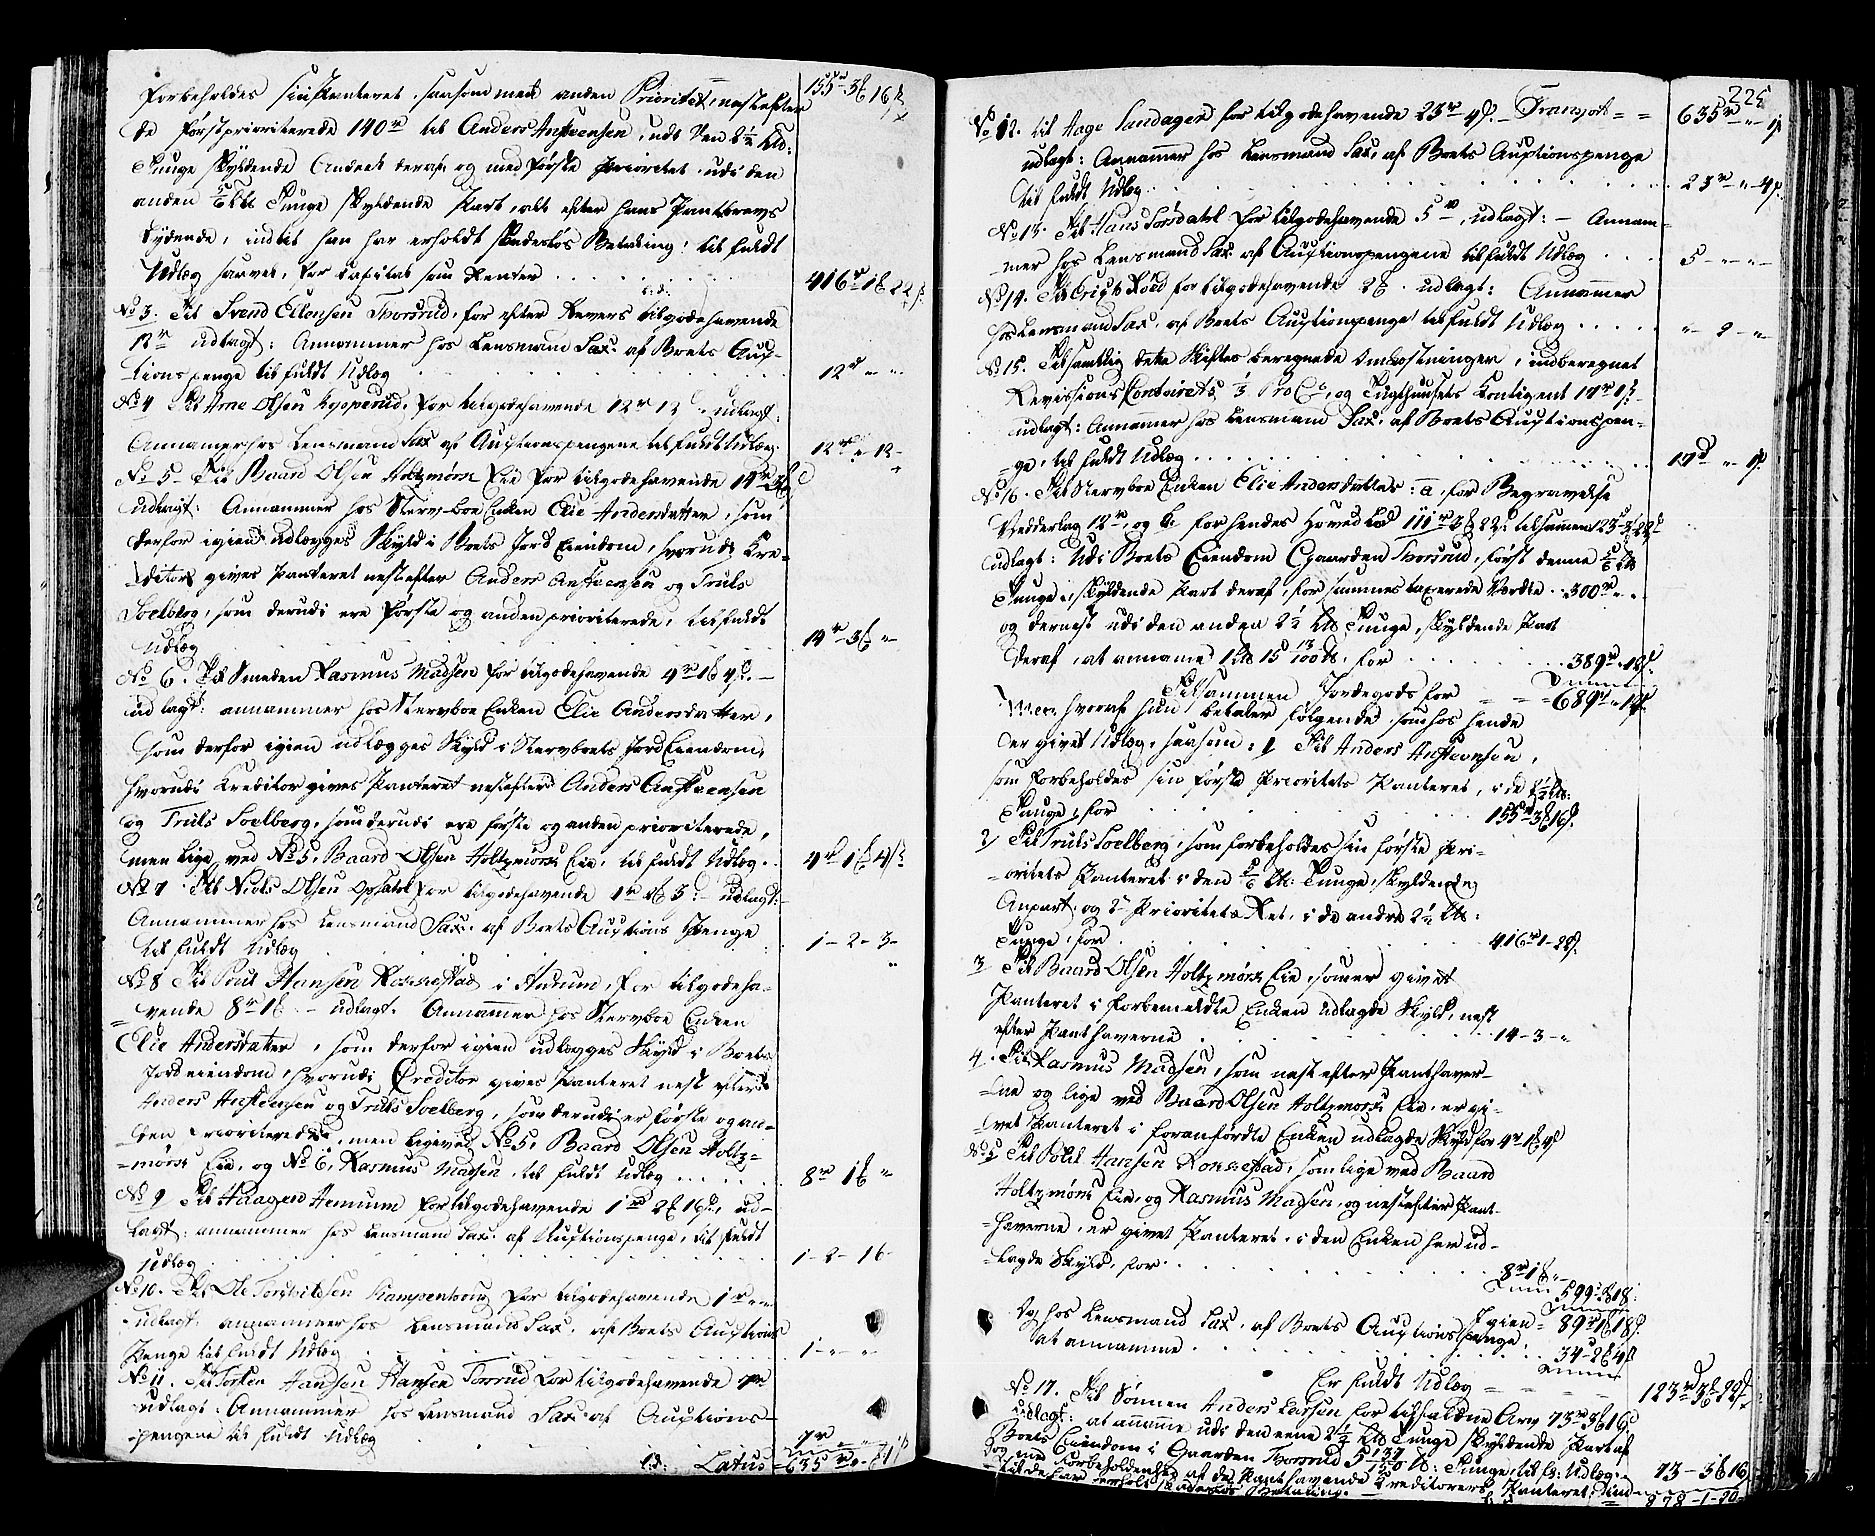 155 rd 3 ß 16 s
forbeholdes sin Panteret, saasom med anden Prioritet, nest efter
de førstprioriterede 140 rd til Anders Anstensen, udi den 2 1/2 Lb:
Tunge skyldende Andeel deraf og med første Prioritet udi den
anden 5/6 Lb Tunge skyldende Part, alt efter hans Pantbrevs
Lydende, indtil han har erholdt skadesløs Betaling: til fuldt
Udlæg saavel for Capital som Renter . . . 416 rd 1 ß 22 s
No 3. Til Svend Ellensen Thorsrud, for efter Revers tilgodehavende
12 rd udlagt: Annammer hos Lensmand Sax: af Boets Auc-
tionspenge til fuldt Udlæg . . . 12 rd " "
No 4 Til Arne Olsen Kopperud, for tilgodehavende 12 rd 12 s udlagt:
Annammer hos Lensmand Sax af Auctionspengene til fuldt Udlæg. 12 rd " 12 -
No 5 - Til Baard Olsen Holtzmørs Eie for tilgodehavende 14 rd 3 ß
udlagt: Annammer hos Sterv-boe Enken Elie Andersdatter, som
derfor igien udlægges Skyld i Boets Jord Eiendom, hvorudi Kre-
ditor gives Panteret nest efter Anders Anstensen og Truls
Soelberg, som derudi ere første og anden prioriterede, til fuldt
Udlæg . . . 14 rd - 3 ß "
No 6. Til Smeden Rasmus Madsen for tilgodehavende 4 rd 1 ß 4 s. -
udlagt: annammer hos Stervboe Enken Elie Andersdatter,
som derfor igien udlægges Skyld i Stervboets Jord Eiendom,
hvorudi Kreditor gives Panteret nest efter Anders Anstensen
og Truls Soelberg, som derudi ere første og anden prioriterede,
men lige ved No 5, Baard Olsen Holtzmørs Eie, til fuldt Udlæg . . 4 rd 1 ß 4 s
No 7 Til Niels Olsen Opsahl for tilgodehavende 1 rd 2 ß 3: - udlagt:
Annammer hos Lensmand Sax. af Boets Auctions Penge
til fuldt Udlæg . . . 1 - 2 - 3 -
No 8 Til Poul Hansen Konnestad i Aurum, for tilgodeha-
vende 8 rd 1 ß - udlagt. Annammer hos Stervboe Enken
Elie Andersdatter, som derfor igien udlægges Skyld i Boets
Jordeiendom, hvorudi Creditor gives Panteret nest efter
Anders Anstensen og Truls Soelberg, som derudi er første og an-
den prioriterede, men lige ved No 5, Baard Olsen Holtz-
mørs Eie, og No 6, Rasmus Madsen, til fuldt Udlæg . . . 8 rd 1 ß "
No 9 Til Haagen Hemum for tilgodehavende 1 rd 2 ß 16 s, ud-
lagt: annammer hos Lensmand Sax. af Auctionspenge, til fuldt
Udlæg . . . 1 - 2 - 16 -
No 10. Til Ole Torstensen Kampenhoug for tilgodehavende 1 rd " "
udlagt: annammer hos Lensmand Sax. af Boets Auctions
Penge til fuldt Udlæg . . . 1 - " - "
No 11. Til Torsten Hansen Torsrud for tilgodehavende 7 rd
udlagt: Annammer hos Lensmand Sax af Auctions-
pengene til fuldt Udlæg . . . 7 rd " "
Latus = 635 rd " 1 s
225
Transport = = 635 rd " 1 s
No 12. til Aage Sandager for tilgodehavende 23 rd 4 s. -
udlagt: Annammer hos Lensmand Sax, af Boets Auctionspenge
til fuldt Udlæg . . . 23 rd " 4 s.
No 13. Til Hans Torsdahl for tilgodehavende 5 rd, udlagt: - Annam-
mer hos Lensmand Sax af Auctionspengene til fuldt Udlæg . . . 5 - " - "
No 14. Til Erich Roed for tilgodehavende 2 ß. udlagt: Annammer
hos Lensmand Sax, af Boets Auctionspenge til fuldt Udlæg . . . " - 2 - "
No 15. Til samtlig dette Skiftes beregnede Omkostninger, indberegnet
Revissions Contoirets 1/3 Pro Ct, og Tugthuusets Contigent 17 rd 1 s.
udlagt: Annammer hos Lensmand Sax. af Boets Auctionspen-
ge, til fuldt Udlæg . . . 17 rd " 1 s.
No 16. Til Stervboe Enken Elie Andersdatter: a, for Begravelse
Vederlag 12 rd, og b. for hendes Hoved Lod 111 rd 3 ß 22 s tilsammen 123 - 3 - 22 s
udlagt: Udi Boets Eiendom Gaarden Thorsrud, først denne 5/6 Lb
Tunge, skyldende Part deraf, for sammes taxerede Værdie . . 300 rd " "
og dernest udi den anden 2 1/2 Lb Tunge, skyldende Part
deraf, at annamme 1 Lb 15 13/100 Lb. for . . . 389 rd " 12 s
Tilsammen Jordegods for = = 689 rd " 12 s
Men hvoraf hun betaler følgende, som hos hende
er givet Udlæg, saasom: 1 Til Anders Anstensen,
som forbeholdes sin første Prioritets Panteret, i de 2 1/2 Lb:
Tunge, for . . . 155 rd 3 ß 16 s.
2) Til Truls Soelberg, som forbeholdes sin første Pri-
oritets Panteret i den 5/6 Lb: Tunge, skyldende
Anpart, og 2d Prioritets Ret, i de andre 2 1/2 Lb:
Tunge, for . . . 416 rd 1 - 22 s.
3 Til Baard Olsen Holtzmørs Eie, som er givet
Panteret i forbemeldte Enken udlagde Skyld, nest
efter Panthaverne . . . 14 - 3 - "
4. Til Rasmus Madsen, som nest efter Panthaver-
ne og lige ved Baard Olsen Holtzmørs Eie, er gi-
vet Panteret i foranførdte Enken udlagde Skyld for 4 rd 1 ß 4 s
No 5 Til Poul Hansen Konnestad, som lige ved Baard
Holtzmørs Eie, og Rasmus Madsen, og nest efter Pant-
haverne, er givet Panteret i den Enken her ud-
lagde Skyld, for . . . 8 rd 1 ß " -
Sum 599 rd 2 ß 18 s:
Igien = 89 rd 1 ß 18 s.
Og hos Lensmand Sax, af Boets Auctionspenge,
at annamme . . . 34 - 2 ß 4 s
Er fuldt Udlæg = = = = 123 rd 3 ß 22 s
No 17. Til Sønnen Anders Larsen for tilfaldne Arv 73 rd 3 ß 16 s
udlagt: at annamme udi den eene 2 1/2 Lb Tunge skyldende Part af
Boets Eiendom i Gaarden Thorsrud 5 137/150 Lb: Tunge, til f: Udlæg. - 73 - 3 ß 16
dog med Forbeholdenhed af de Panthavende Creditorers Panteret: ind-
til de har erholdt skadesløs Betaling. - 878 - 1 - 20 -